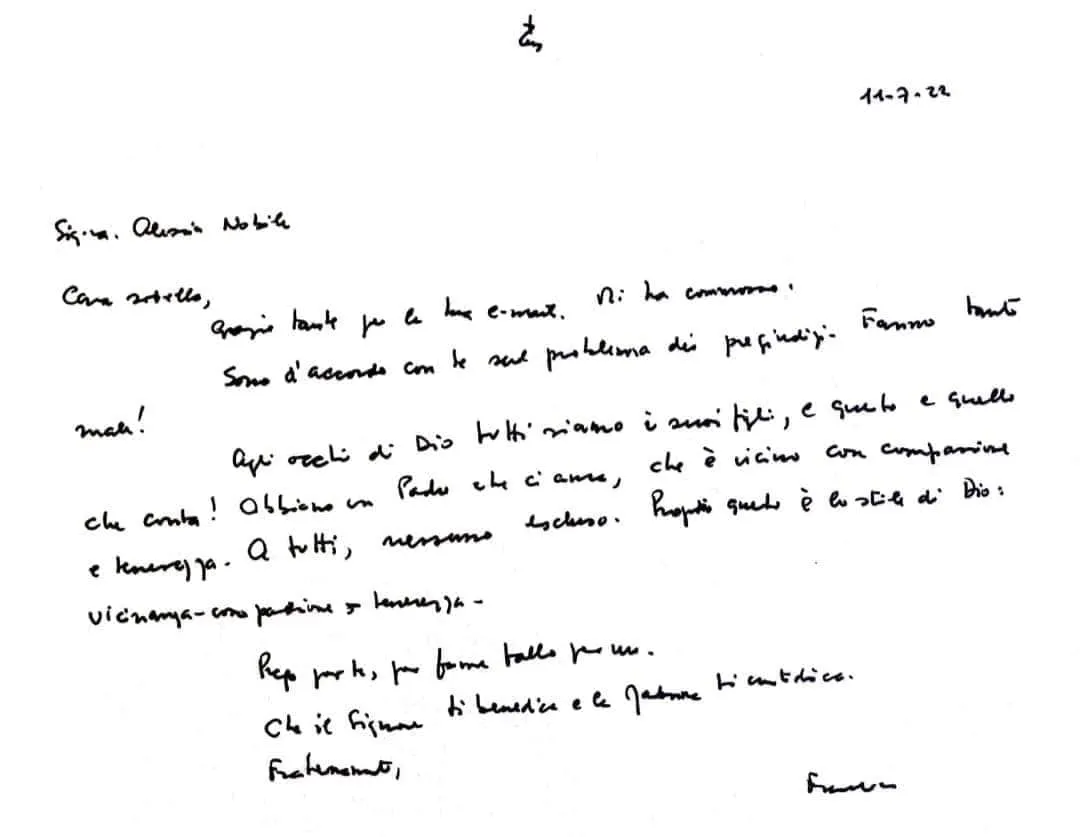 11-7-22
Sig.ra. Alessia Nobile
Cara sorella,
grazie tante per la tua e-mail. Mi ha commosso.
Sono d'accordo con te sul problema dei pregiudizi. Fanno tanto
male!
Agli occhi di Dio tutti siamo i suoi figli, e questo e quello
che conta! Abbiamo un Padre che ci ama, che è vicino con compassione
e tenerezza. A tutti, nessuno escluso. Proprio questo è lo stile di Dio:
vicinanza-compassione e tenerezza-
Prego per te, per favore fallo per me.
Che il Signore ti benedica e la Madonna ti custodisca.
Fraternamente,
Francesco